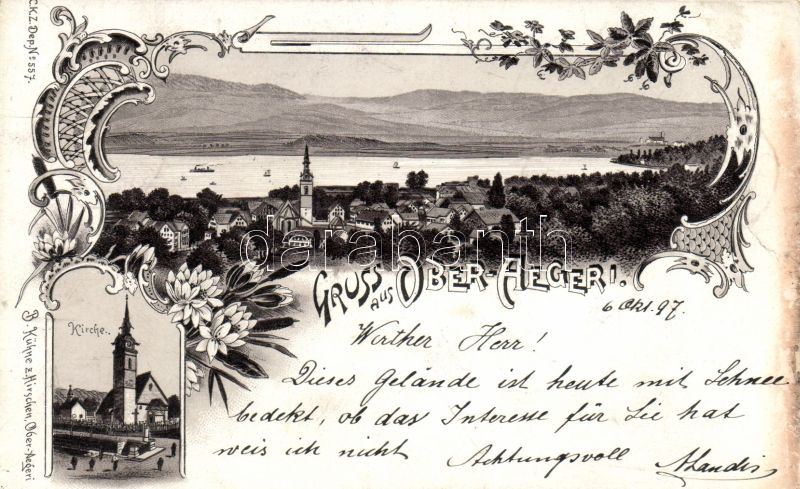 C.K.Z. Dep. No 557.
GRUSS aus OBER-AEGERI.
6 Okt. 97.
Kirche.
B. Kühne z. Hirschen, Ober-Aegeri
Werther Herr!
Dieses Gelände ist heute mit Schnee
bedekt, ob das Interesse für Sie hat
weis ich nicht Achtungsvoll
darabanth.com